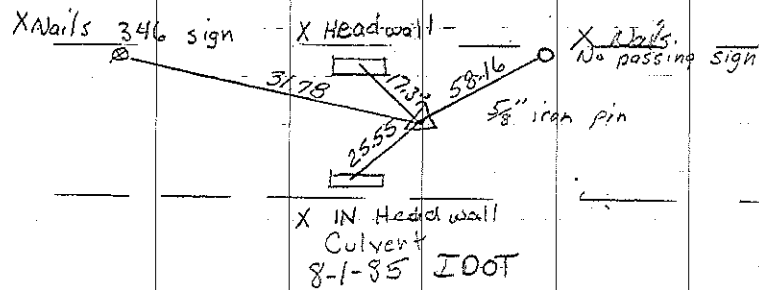 X Nails 346 sign
X Headwall
X Nails.
No passing sign
31.78
17.37
58.16
5/8" iron pin
25.55
X IN Headwall
Culvert
8-1-85 IDOT